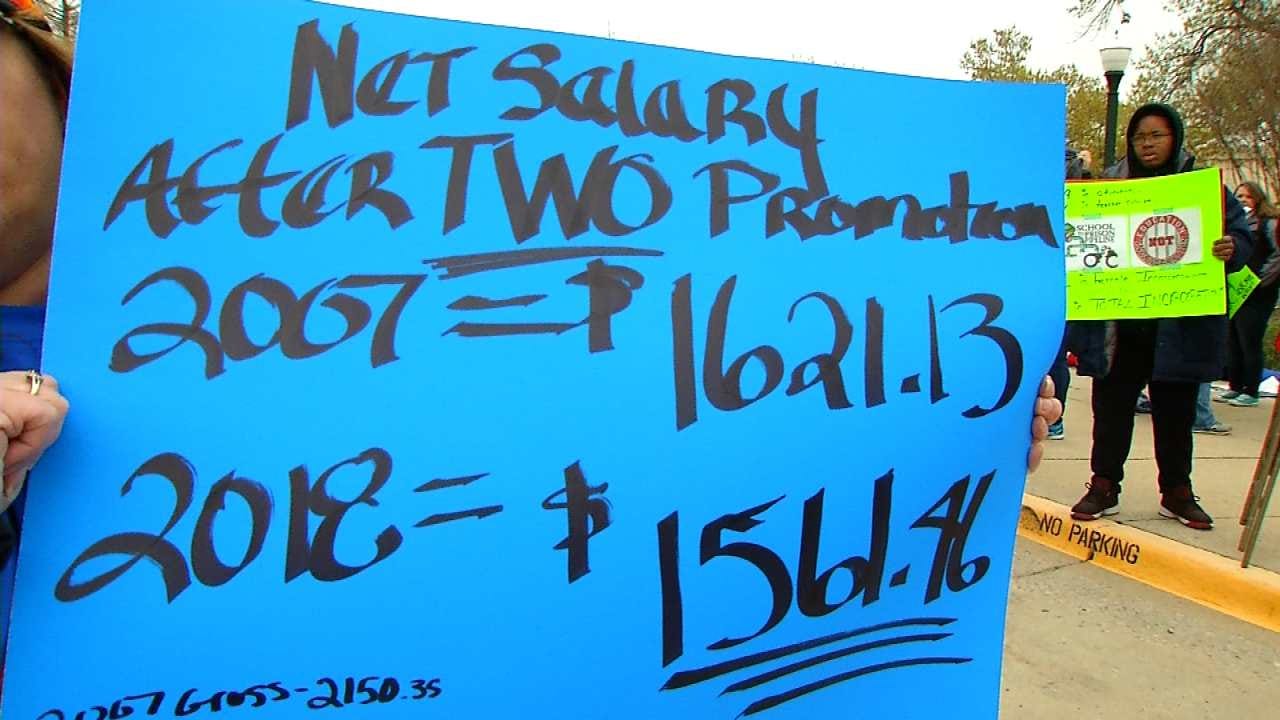 Net Salary
After TWO Promotion
2007 = $ 1621.13
2018 = $ 1561.46
2007 Gross-2150.35
SCHOOL
PRISON
EDUCATION
NOT
TOTAL
NO PARKING